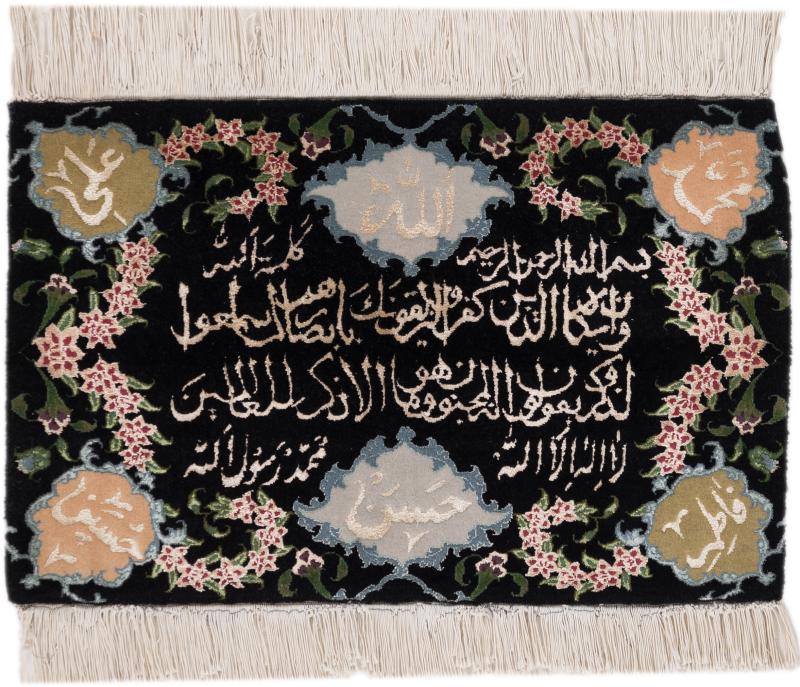 محمد الله علی
بسم الله الرحمن الرحیم کلمة الله
وان یکاد الذین کفروا لیزلقونک بابصارهم لما سمعوا
الذکر ویقولون انه لمجنون وما هو الا ذکر للعالمین
لا اله الا الله محمد رسول الله
فاطمه حسن حسین